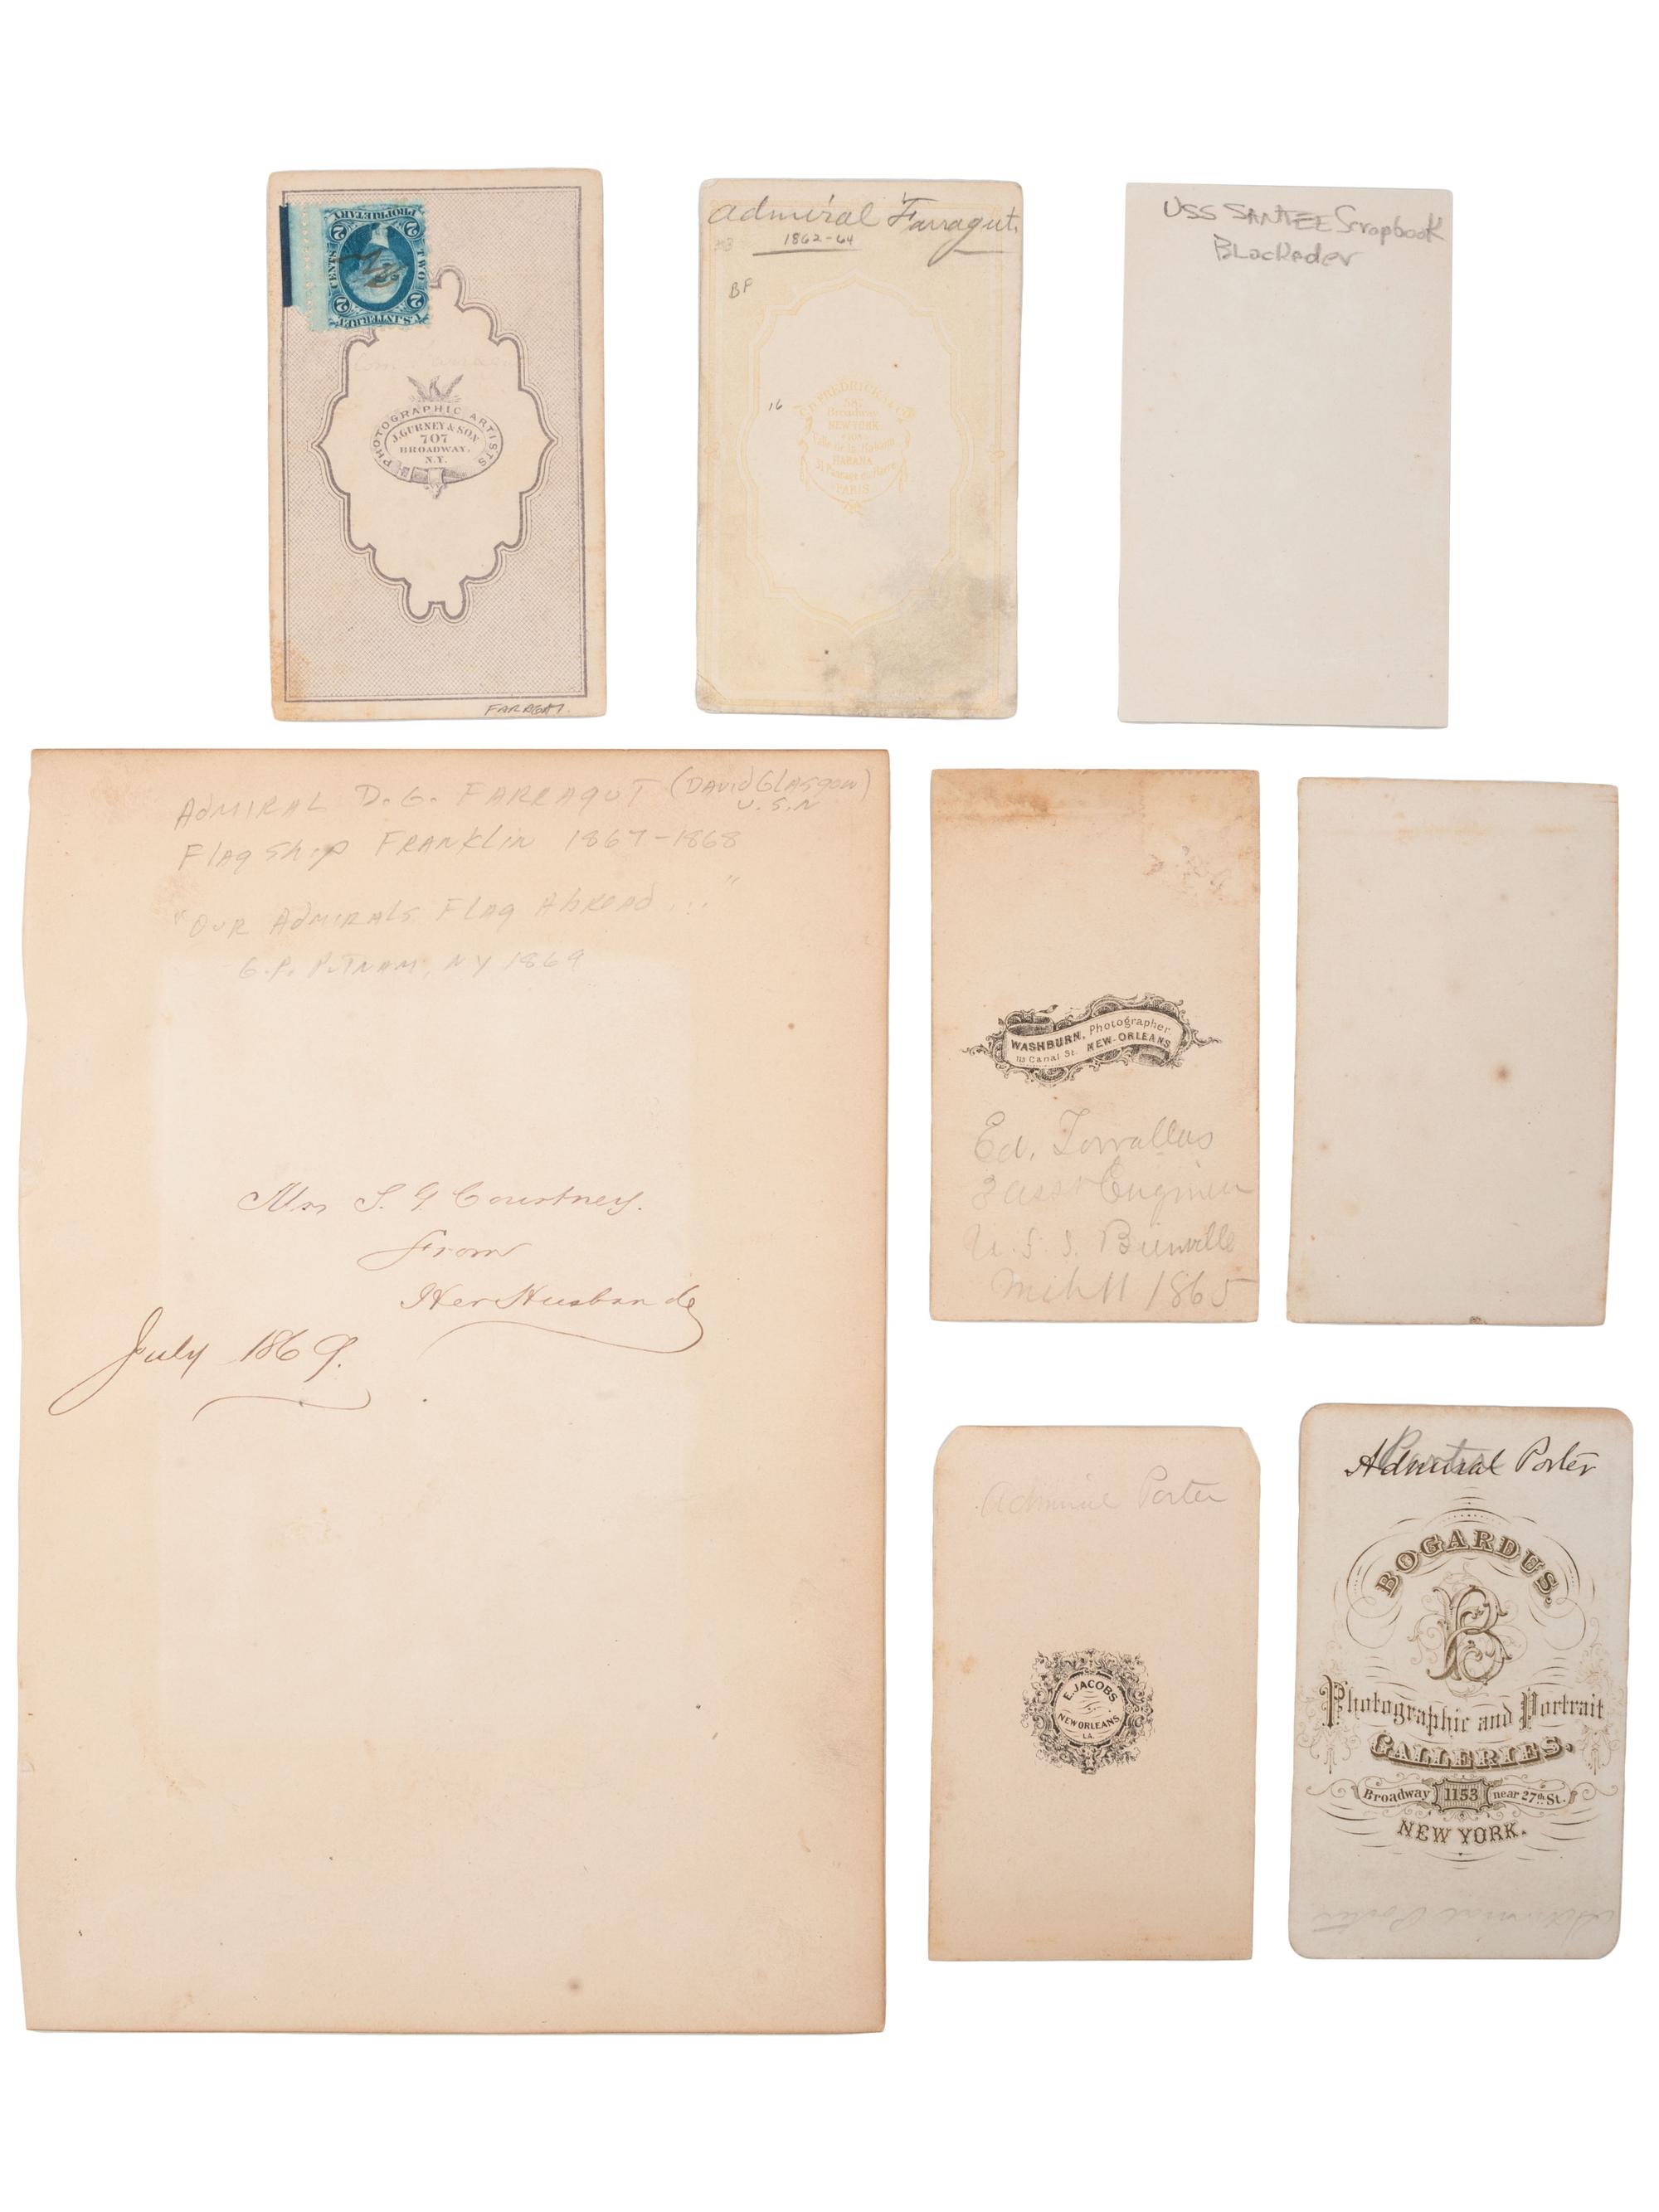 PROPRIETARY
TWO
CENTS
2
2
2
2
U.S. INTER. REV.
PHOTOGRAPHIC ARTISTS
J. GURNEY & SON
707
BROADWAY.
N.Y.
FARRGAT
Admiral Farragut.
1862-64
BF
16
C.D. FREDRICKS & Co
587
Broadway
NEW YORK
HABANA
PARIS
USS SANTEE Scrapbook
BLockader
ADMIRAL D. G. FARRAGUT (DAVID GLASGOW)
U.S.N
FlAg Ship FRANKlIN 1867-1868
"OUR AdMIRALs FlAg AbROAD..."
G.P. PUTNAM, NY 1869
Mrs S. G Courtney.
From
Her Husband
July 1869.
WASHBURN, Photographer
113 Canal St. NEW-ORLEANS
Ed.
3 asst Engineer
U.S.S. Bienville
1865
Admiral Porter
E. JACOBS
NEW ORLEANS
LA.
Admiral Porter
BOGARDUS,
B
Photographic and Portrait
GALLERIES.
Broadway 1153 near 27th St.
NEW YORK.
Admiral Porter